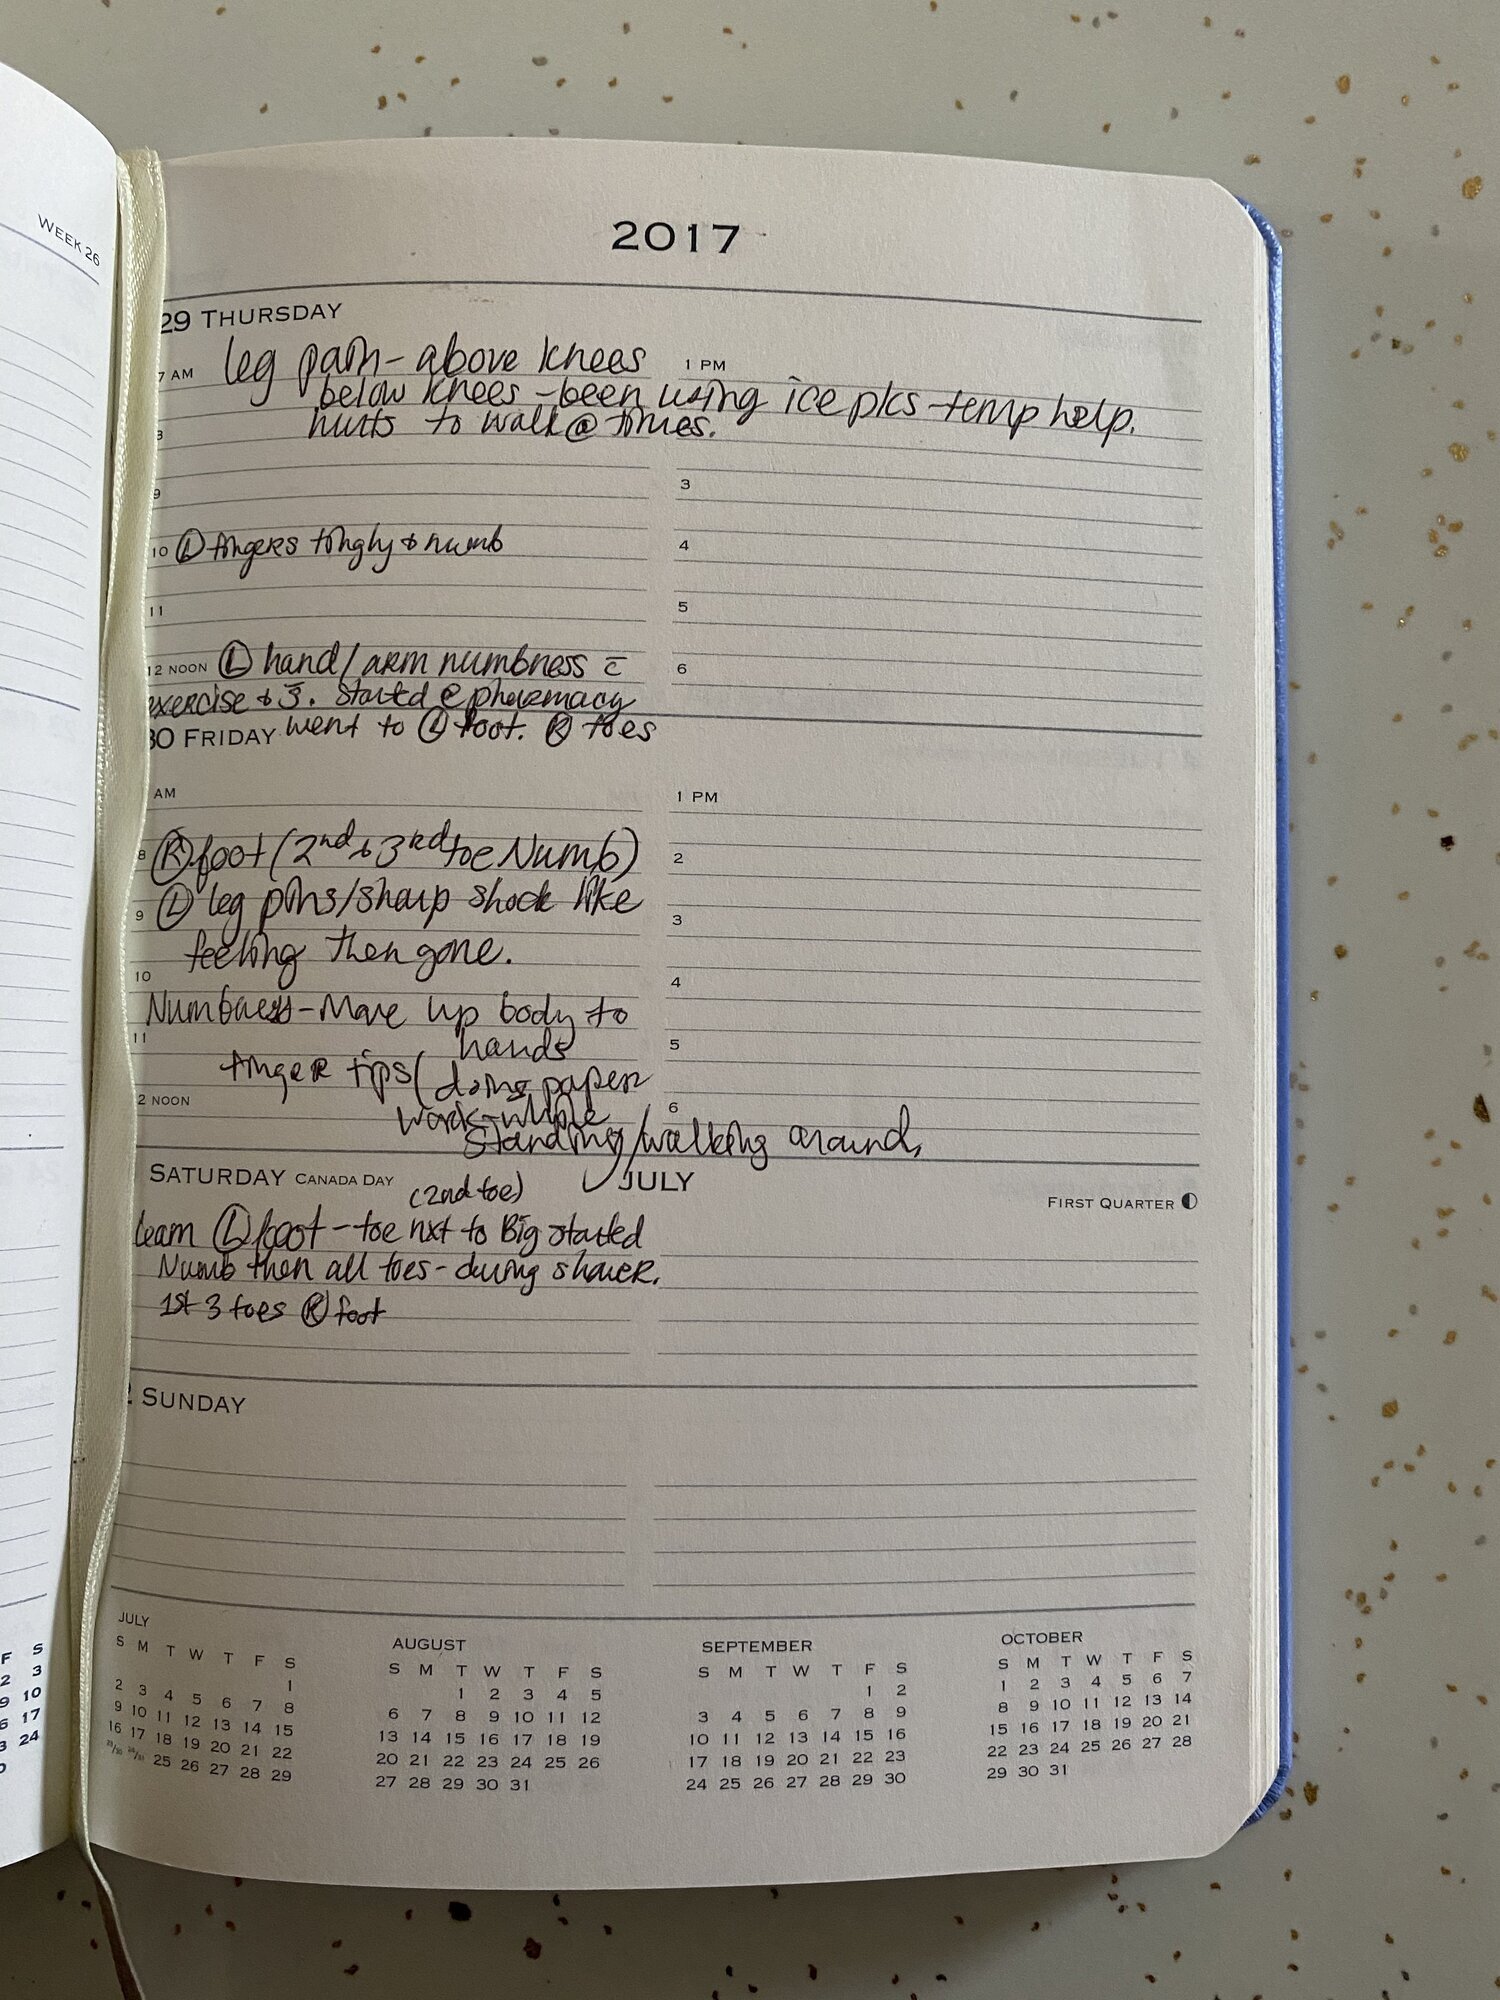 WEEK 26
2017
29 THURSDAY
7 AM leg pain - above knees 1 PM
below knees - been using ice pks - temp help.
8 hurts to walk @ times.
9 3
10 Ⓛ fingers tingly & numb 4
11 5
12 NOON Ⓛ hand/arm numbness c̄ 6
exercise & s̄. Started @ pharmacy
30 FRIDAY went to Ⓛ foot. Ⓡ toes
AM 1 PM
8 Ⓡ foot (2nd & 3rd toe Numb) 2
9 Ⓛ leg pins/sharp shock like 3
feeling then gone.
10 4
Numbness - Move up body to
11 hands 5
finger tips ( doing paper
2 NOON work - while 6
standing/walking around,
SATURDAY CANADA DAY (2nd toe) JULY
FIRST QUARTER
Ⓛ foot - toe nxt to Big started
Numb then all toes - during shower.
1st 3 toes Ⓡ foot
2 SUNDAY
JULY
S M T W T F S
1
2 3 4 5 6 7 8
9 10 11 12 13 14 15
16 17 18 19 20 21 22
23/30 24/31 25 26 27 28 29
AUGUST
S M T W T F S
1 2 3 4 5
6 7 8 9 10 11 12
13 14 15 16 17 18 19
20 21 22 23 24 25 26
27 28 29 30 31
SEPTEMBER
S M T W T F S
1 2
3 4 5 6 7 8 9
10 11 12 13 14 15 16
17 18 19 20 21 22 23
24 25 26 27 28 29 30
OCTOBER
S M T W T F S
1 2 3 4 5 6 7
8 9 10 11 12 13 14
15 16 17 18 19 20 21
22 23 24 25 26 27 28
29 30 31
F S
2 3
9 10
6 17
3 24
0